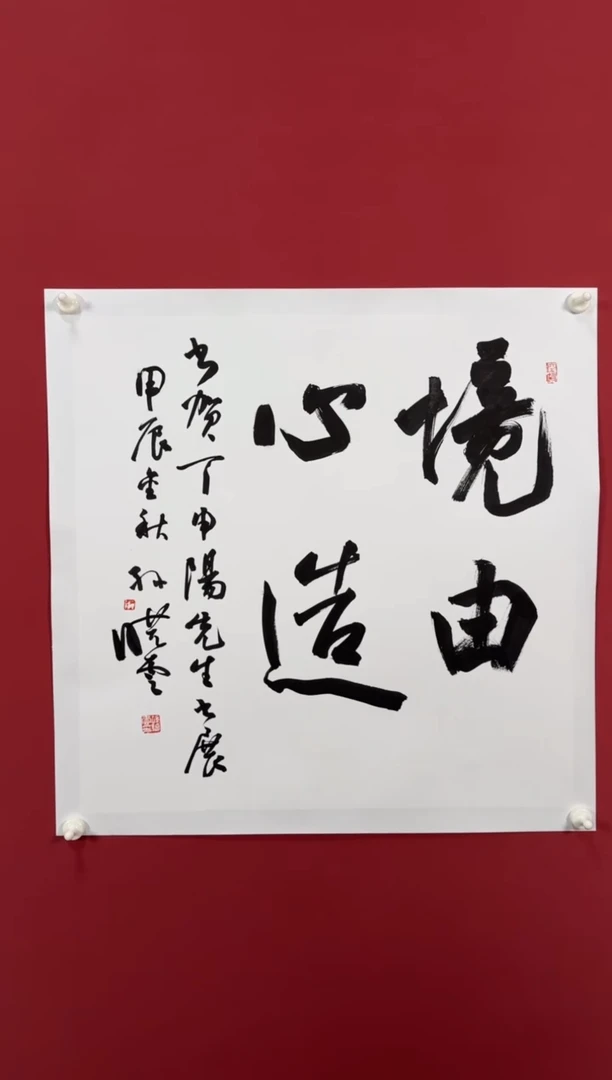 境由
心造
书贺丁申阳先生书展
甲辰金秋孙晓云